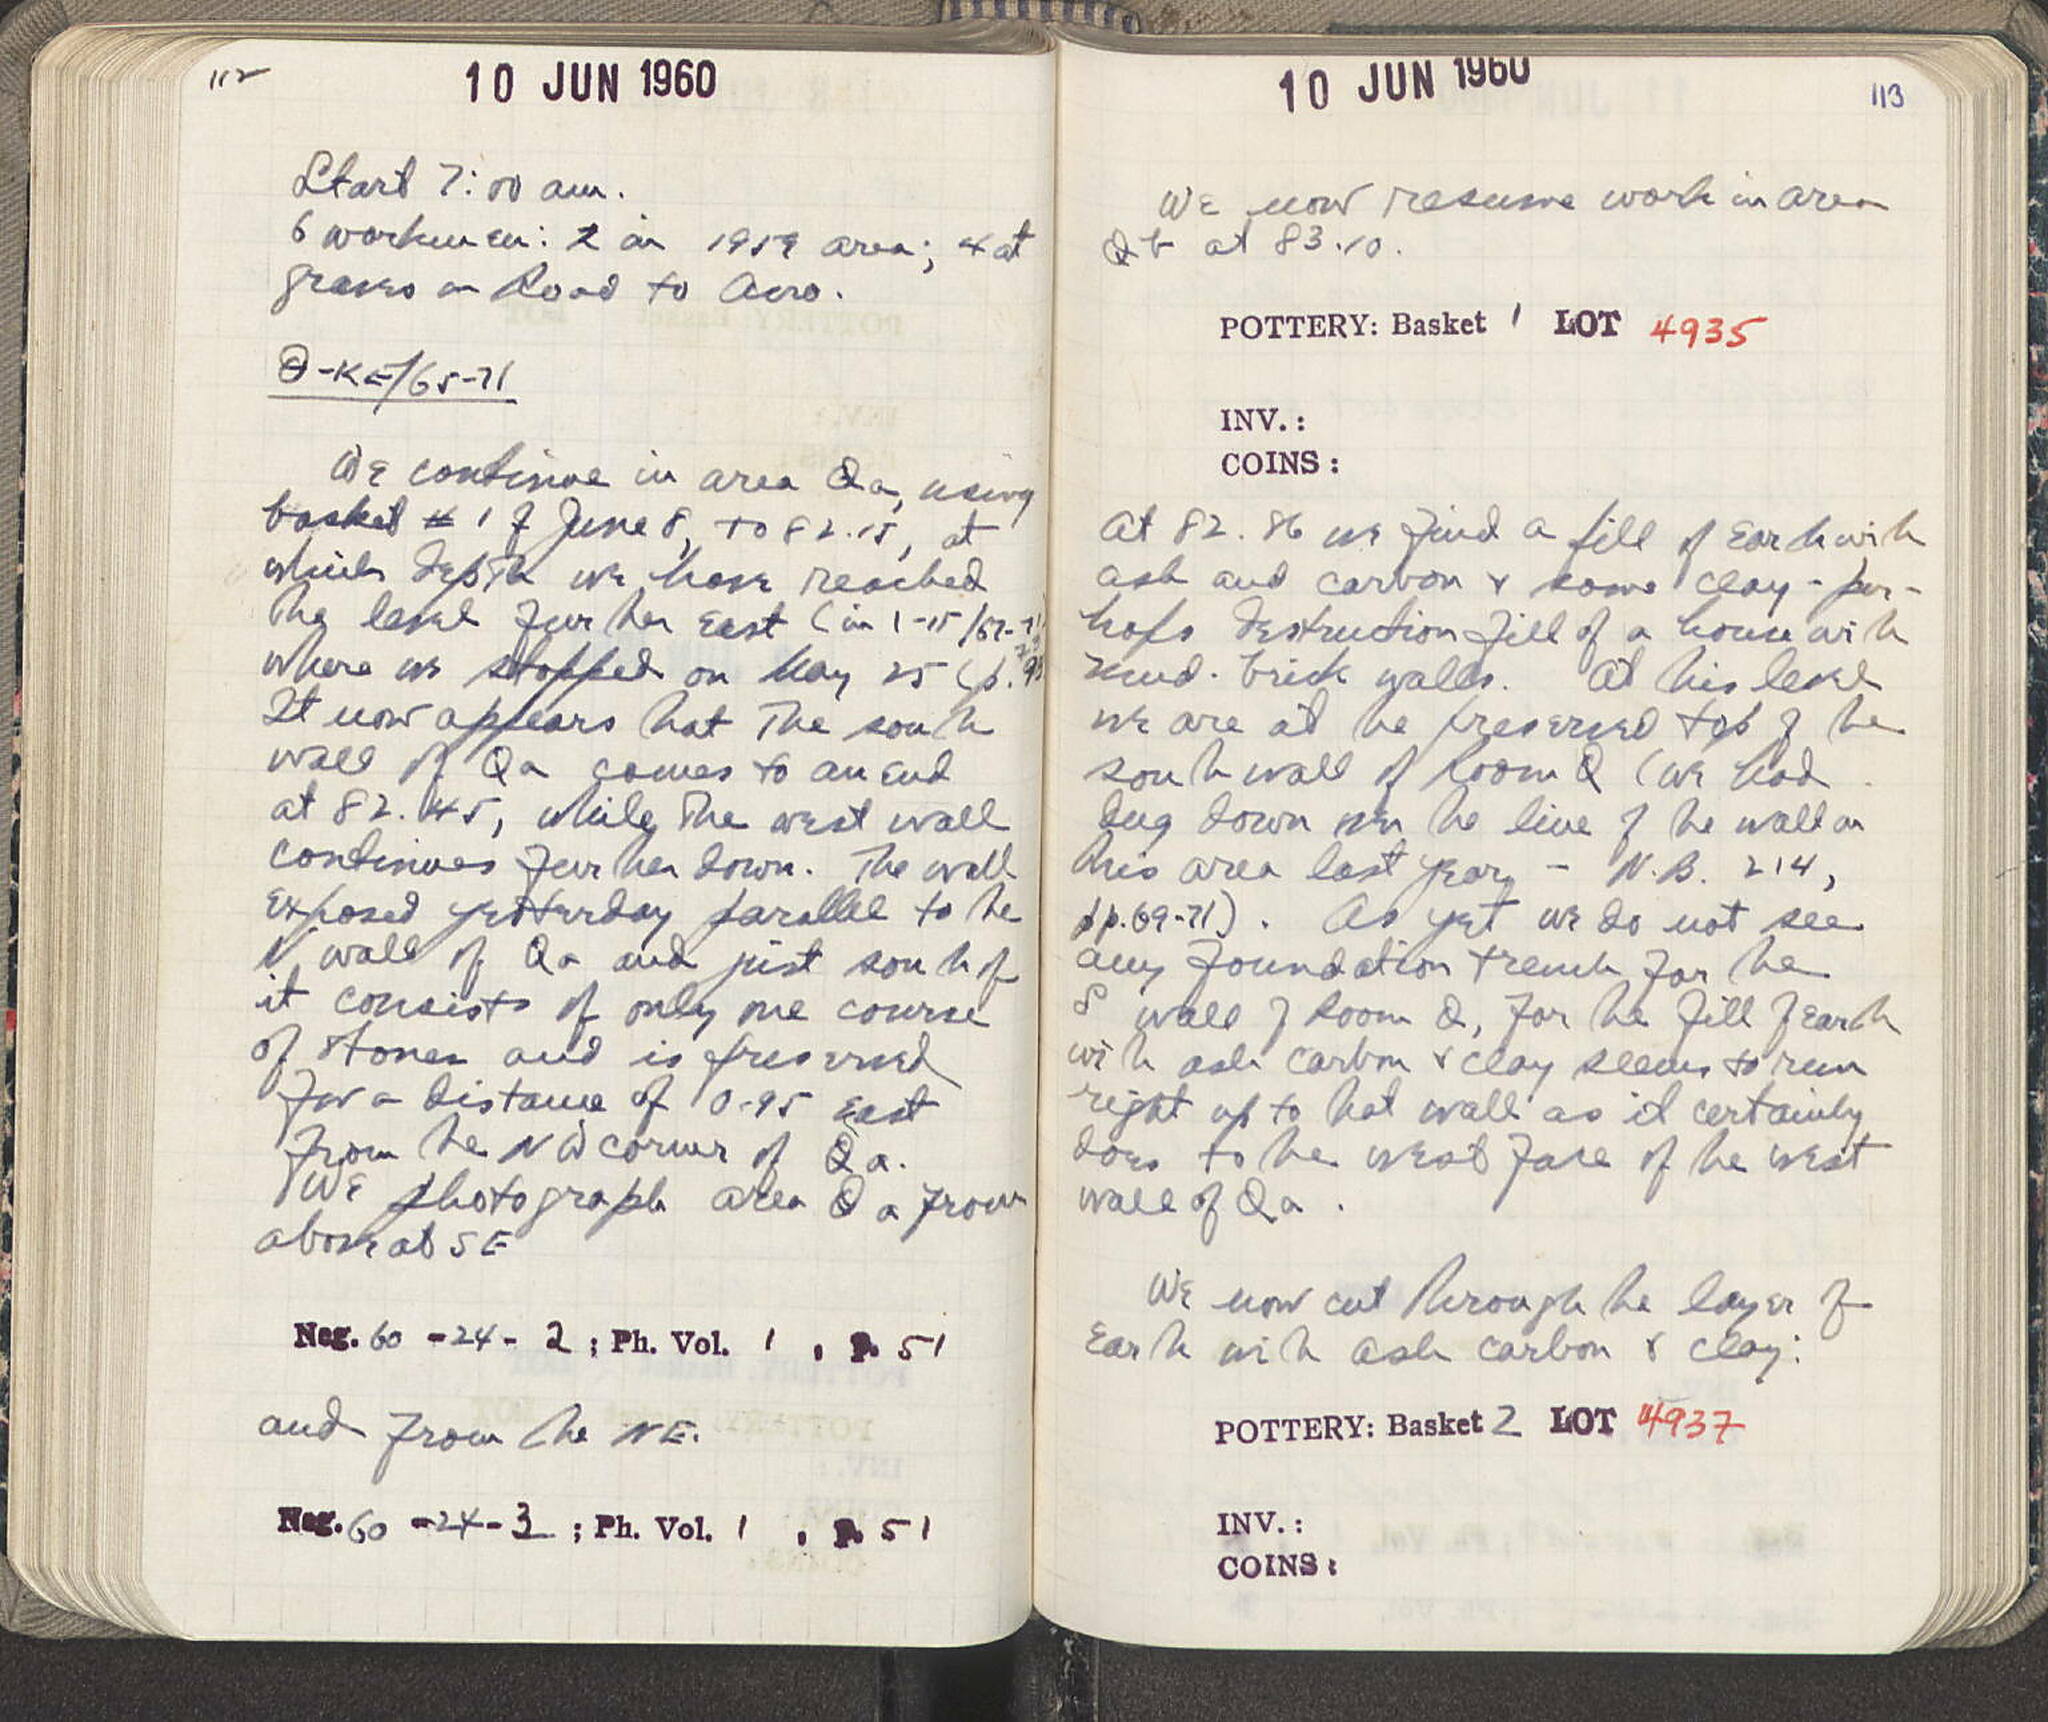 112
10 JUN 1960
Start 7:00 am.
6 workmen: 2 in 1959 area; 4 at
graves on Road to Acro.
Θ-KE/65-71
We continue in area Qa, using
basket # 1 of June 8, to 82.15, at
which depth we have reached
the level further east (in 1-15/67-71
where we stopped on May 25 (p.
It now appears that the south
wall of Qa comes to an end
at 82.45, while the west wall
continues further down. The wall
exposed yesterday parallel to the
N wall of Qa and just south of
it consists of only one course
of stones and is preserved
for a distance of 0.95 east
from the NW corner of Qa.
We photograph area Qa from
above at SE
Neg. 60 - 24 - 2 ; Ph. Vol. 1 , p. 51
and from the NE.
Neg. 60 - 24 - 3 ; Ph. Vol. 1 , p. 51
10 JUN 1960
113
We now resume work in area
Qb at 83.10.
POTTERY: Basket 1 LOT 4935
INV.:
COINS:
At 82.86 we find a fill of earth with
ash and carbon & some clay - per-
haps destruction fill of a house with
mud-brick walls. At this level
we are at the preserved top of the
south wall of Room Q (we had
dug down over the line of the wall in
this area last year - N.B. 214,
pp. 69-71). As yet we do not see
any foundation trench for the
S wall of Room Q, for the fill of earth
with ash carbon & clay seems to run
right up to that wall as it certainly
does to the west face of the west
wall of Qa.
We now cut through the layer of
earth with ash carbon & clay:
POTTERY: Basket 2 LOT 4937
INV.:
COINS: